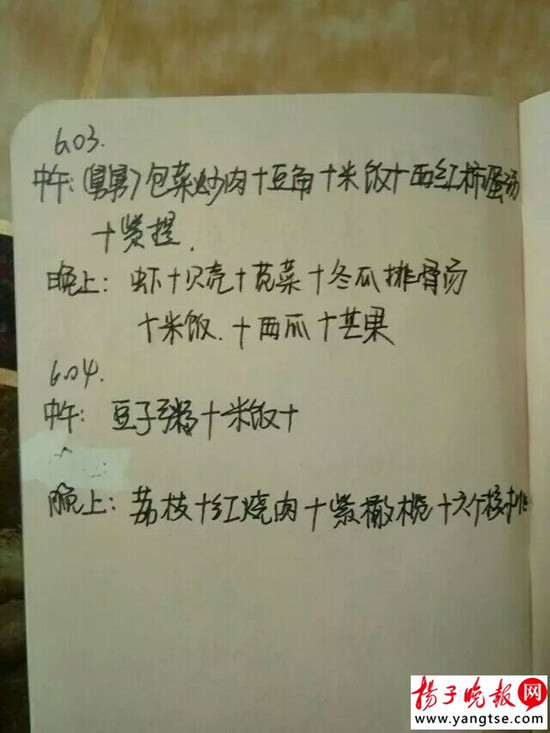 6.03.
中午:(舅舅)包菜炒肉+豆角+米饭+西红柿蛋汤
+紫提.
晚上:虾+贝壳+苋菜+冬瓜排骨汤
+米饭.+西瓜+芒果
6.04.
中午:豆子粥+米饭+
晚上:荔枝+红烧肉+紫橄榄+六个核桃
扬子晚报网
www.yangtse.com